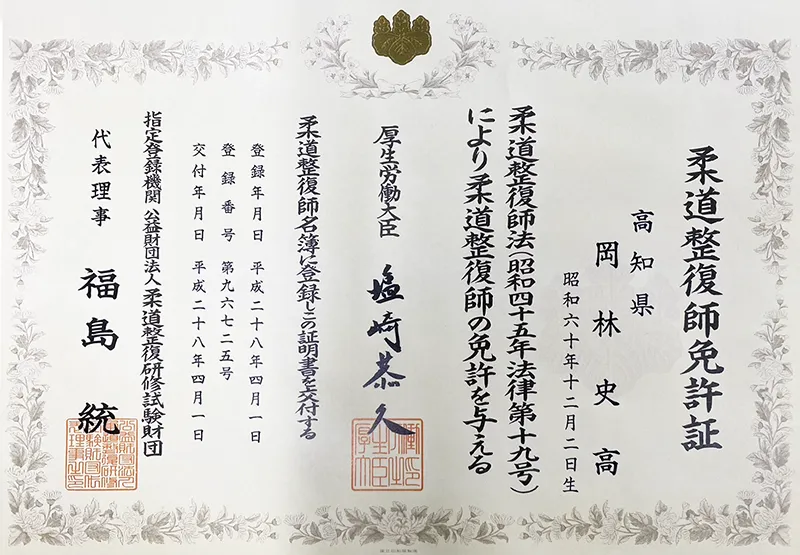 柔道整復師免許証
高知県
岡林史高
昭和六十年十二月二日生
柔道整復師法(昭和四十五年法律第十九号)
により柔道整復師の免許を与える
厚生労働大臣 塩崎恭久
柔道整復師名簿に登録しこの証明書を交付する
登録年月日 平成二十八年四月一日
登録番号 第九六七二五号
交付年月日 平成二十八年四月一日
指定登録機関 公益財団法人柔道整復研修試験財団
代表理事 福島統